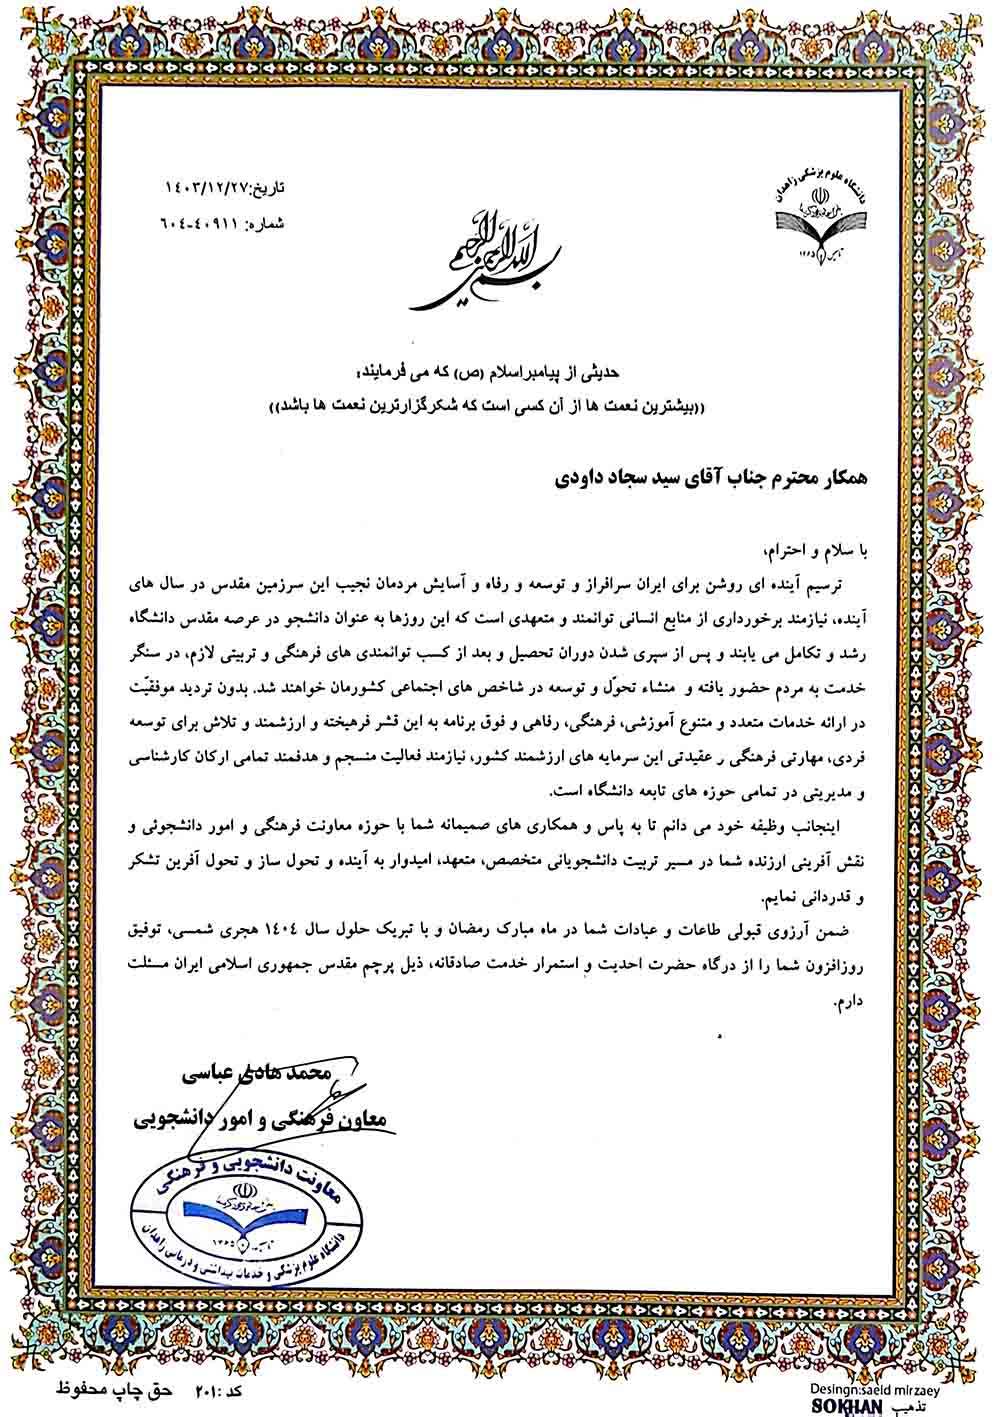 دانشگاه علوم پزشکی زاهدان
تاسیس ۱۳۶۵
تاریخ:۱۴۰۳/۱۲/۲۷
شماره: ۶۰۴-۴۰۹۱۱
بسم الله الرحمن الرحیم
حدیثی از پیامبراسلام (ص) که می فرمایند:
((بیشترین نعمت ها از آن کسی است که شکرگزارترین نعمت ها باشد))
همکار محترم جناب آقای سید سجاد داودی
با سلام و احترام،
ترسیم آینده ای روشن برای ایران سرافراز و توسعه و رفاه و آسایش مردمان نجیب این سرزمین مقدس در سال های
آینده، نیازمند برخورداری از منابع انسانی توانمند و متعهدی است که این روزها به عنوان دانشجو در عرصه مقدس دانشگاه
رشد و تکامل می یابند و پس از سپری شدن دوران تحصیل و بعد از کسب توانمندی های فرهنگی و تربیتی لازم، در سنگر
خدمت به مردم حضور یافته و منشاء تحوّل و توسعه در شاخص های اجتماعی کشورمان خواهند شد. بدون تردید موفقیّت
در ارائه خدمات متعدد و متنوع آموزشی، فرهنگی، رفاهی و فوق برنامه به این قشر فرهیخته و ارزشمند و تلاش برای توسعه
فردی، مهارتی فرهنگی ر عقیدتی این سرمایه های ارزشمند کشور، نیازمند فعالیت منسجم و هدفمند تمامی ارکان کارشناسی
و مدیریتی در تمامی حوزه های تابعه دانشگاه است.
اینجانب وظیفه خود می دانم تا به پاس و همکاری های صمیمانه شما با حوزه معاونت فرهنگی و امور دانشجوئی و
نقش آفرینی ارزنده شما در مسیر تربیت دانشجویانی متخصص، متعهد، امیدوار به آینده و تحول ساز و تحول آفرین تشکر
و قدردانی نمایم.
ضمن آرزوی قبولی طاعات و عبادات شما در ماه مبارک رمضان و با تبریک حلول سال ۱۴۰۴ هجری شمسی، توفیق
روزافزون شما را از درگاه حضرت احدیت و استمرار خدمت صادقانه، ذیل پرچم مقدس جمهوری اسلامی ایران مسئلت
دارم.
محمد هادی عباسی
معاون فرهنگی و امور دانشجویی
معاونت دانشجویی و فرهنگی
تاسیس ۱۳۶۵
دانشگاه علوم پزشکی و خدمات بهداشتی و درمانی زاهدان
کد :۲۰۱ حق چاپ محفوظ
Desingn:saeid mirzaey
تذهیب SOKHAN